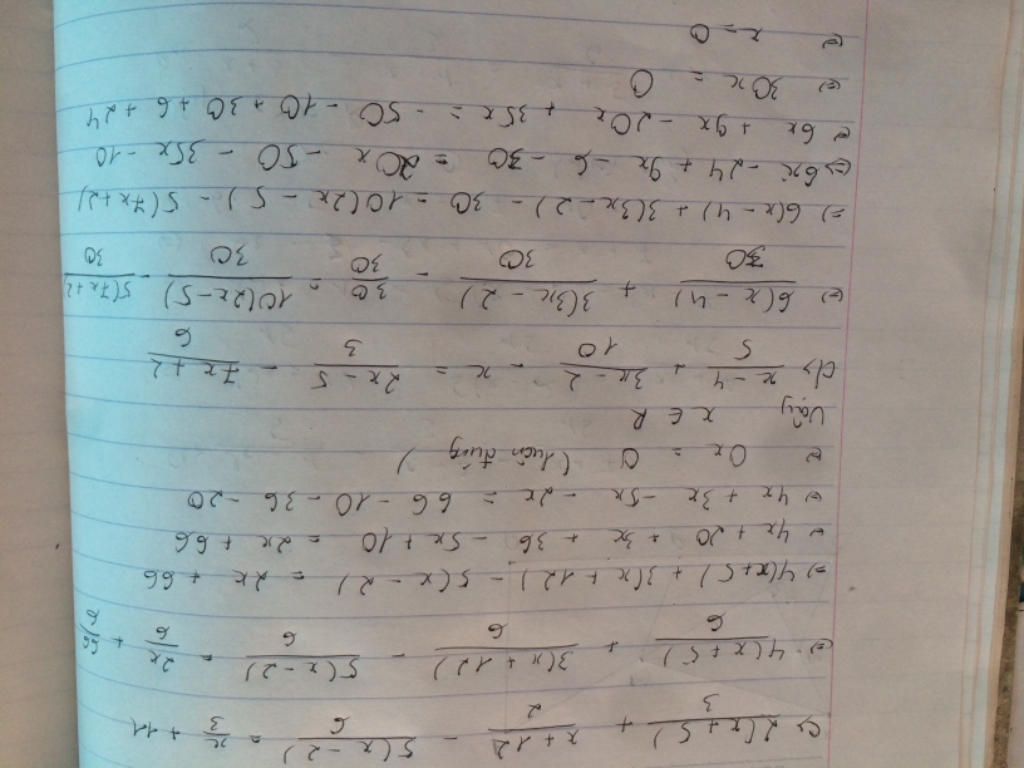 c> 2(x+5)/3 + x+12/2 - 5(x-2)/6 = x/3 + 11
⇔ 4(x+5)/6 + 3(x+12)/6 - 5(x-2)/6 = 2x/6 + 66/6
⇒ 4(x+5) + 3(x+12) - 5(x-2) = 2x + 66
⇔ 4x + 20 + 3x + 36 - 5x + 10 = 2x + 66
⇔ 4x + 3x - 5x - 2x = 66 - 10 - 36 - 20
⇔ 0x = 0 (luôn đúng)
Vậy x ∈ R
d> x-4/5 + 3x-2/10 - x = 2x-5/3 - 7x+2/6
⇔ 6(x-4)/30 + 3(3x-2)/30 - 30/30 = 10(2x-5)/30 - 5(7x+2/30
⇒ 6(x-4) + 3(3x-2) - 30 = 10(2x-5) - 5(7x+2)
⇔ 6x - 24 + 9x - 6 - 30 = 20x - 50 - 35x - 10
⇔ 6x + 9x - 20x + 35x = -50 - 10 + 30 + 6 + 24
⇔ 30x = 0
⇔ x = 0